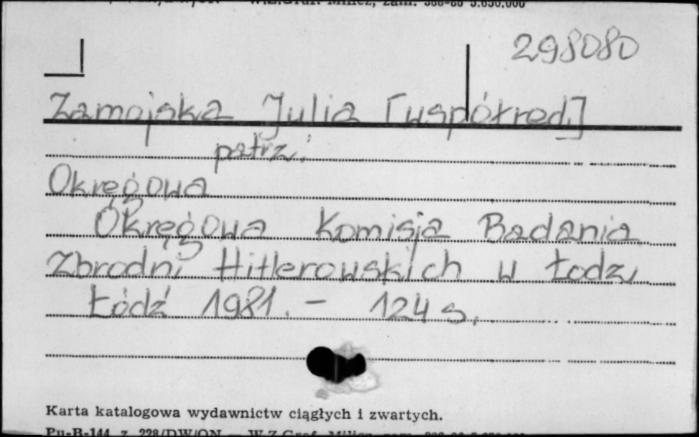 298080
Zamojska Julia [współred.]
patrz:
Okręgowa
Okręgowa Komisja Badania
Zbrodni Hitlerowskich w Łodzi
Łódź 1981. - 124 s.
Karta katalogowa wydawnictw ciągłych i zwartych.
Pu-B-144 z. 228/DW/ON — W.Z.Graf.